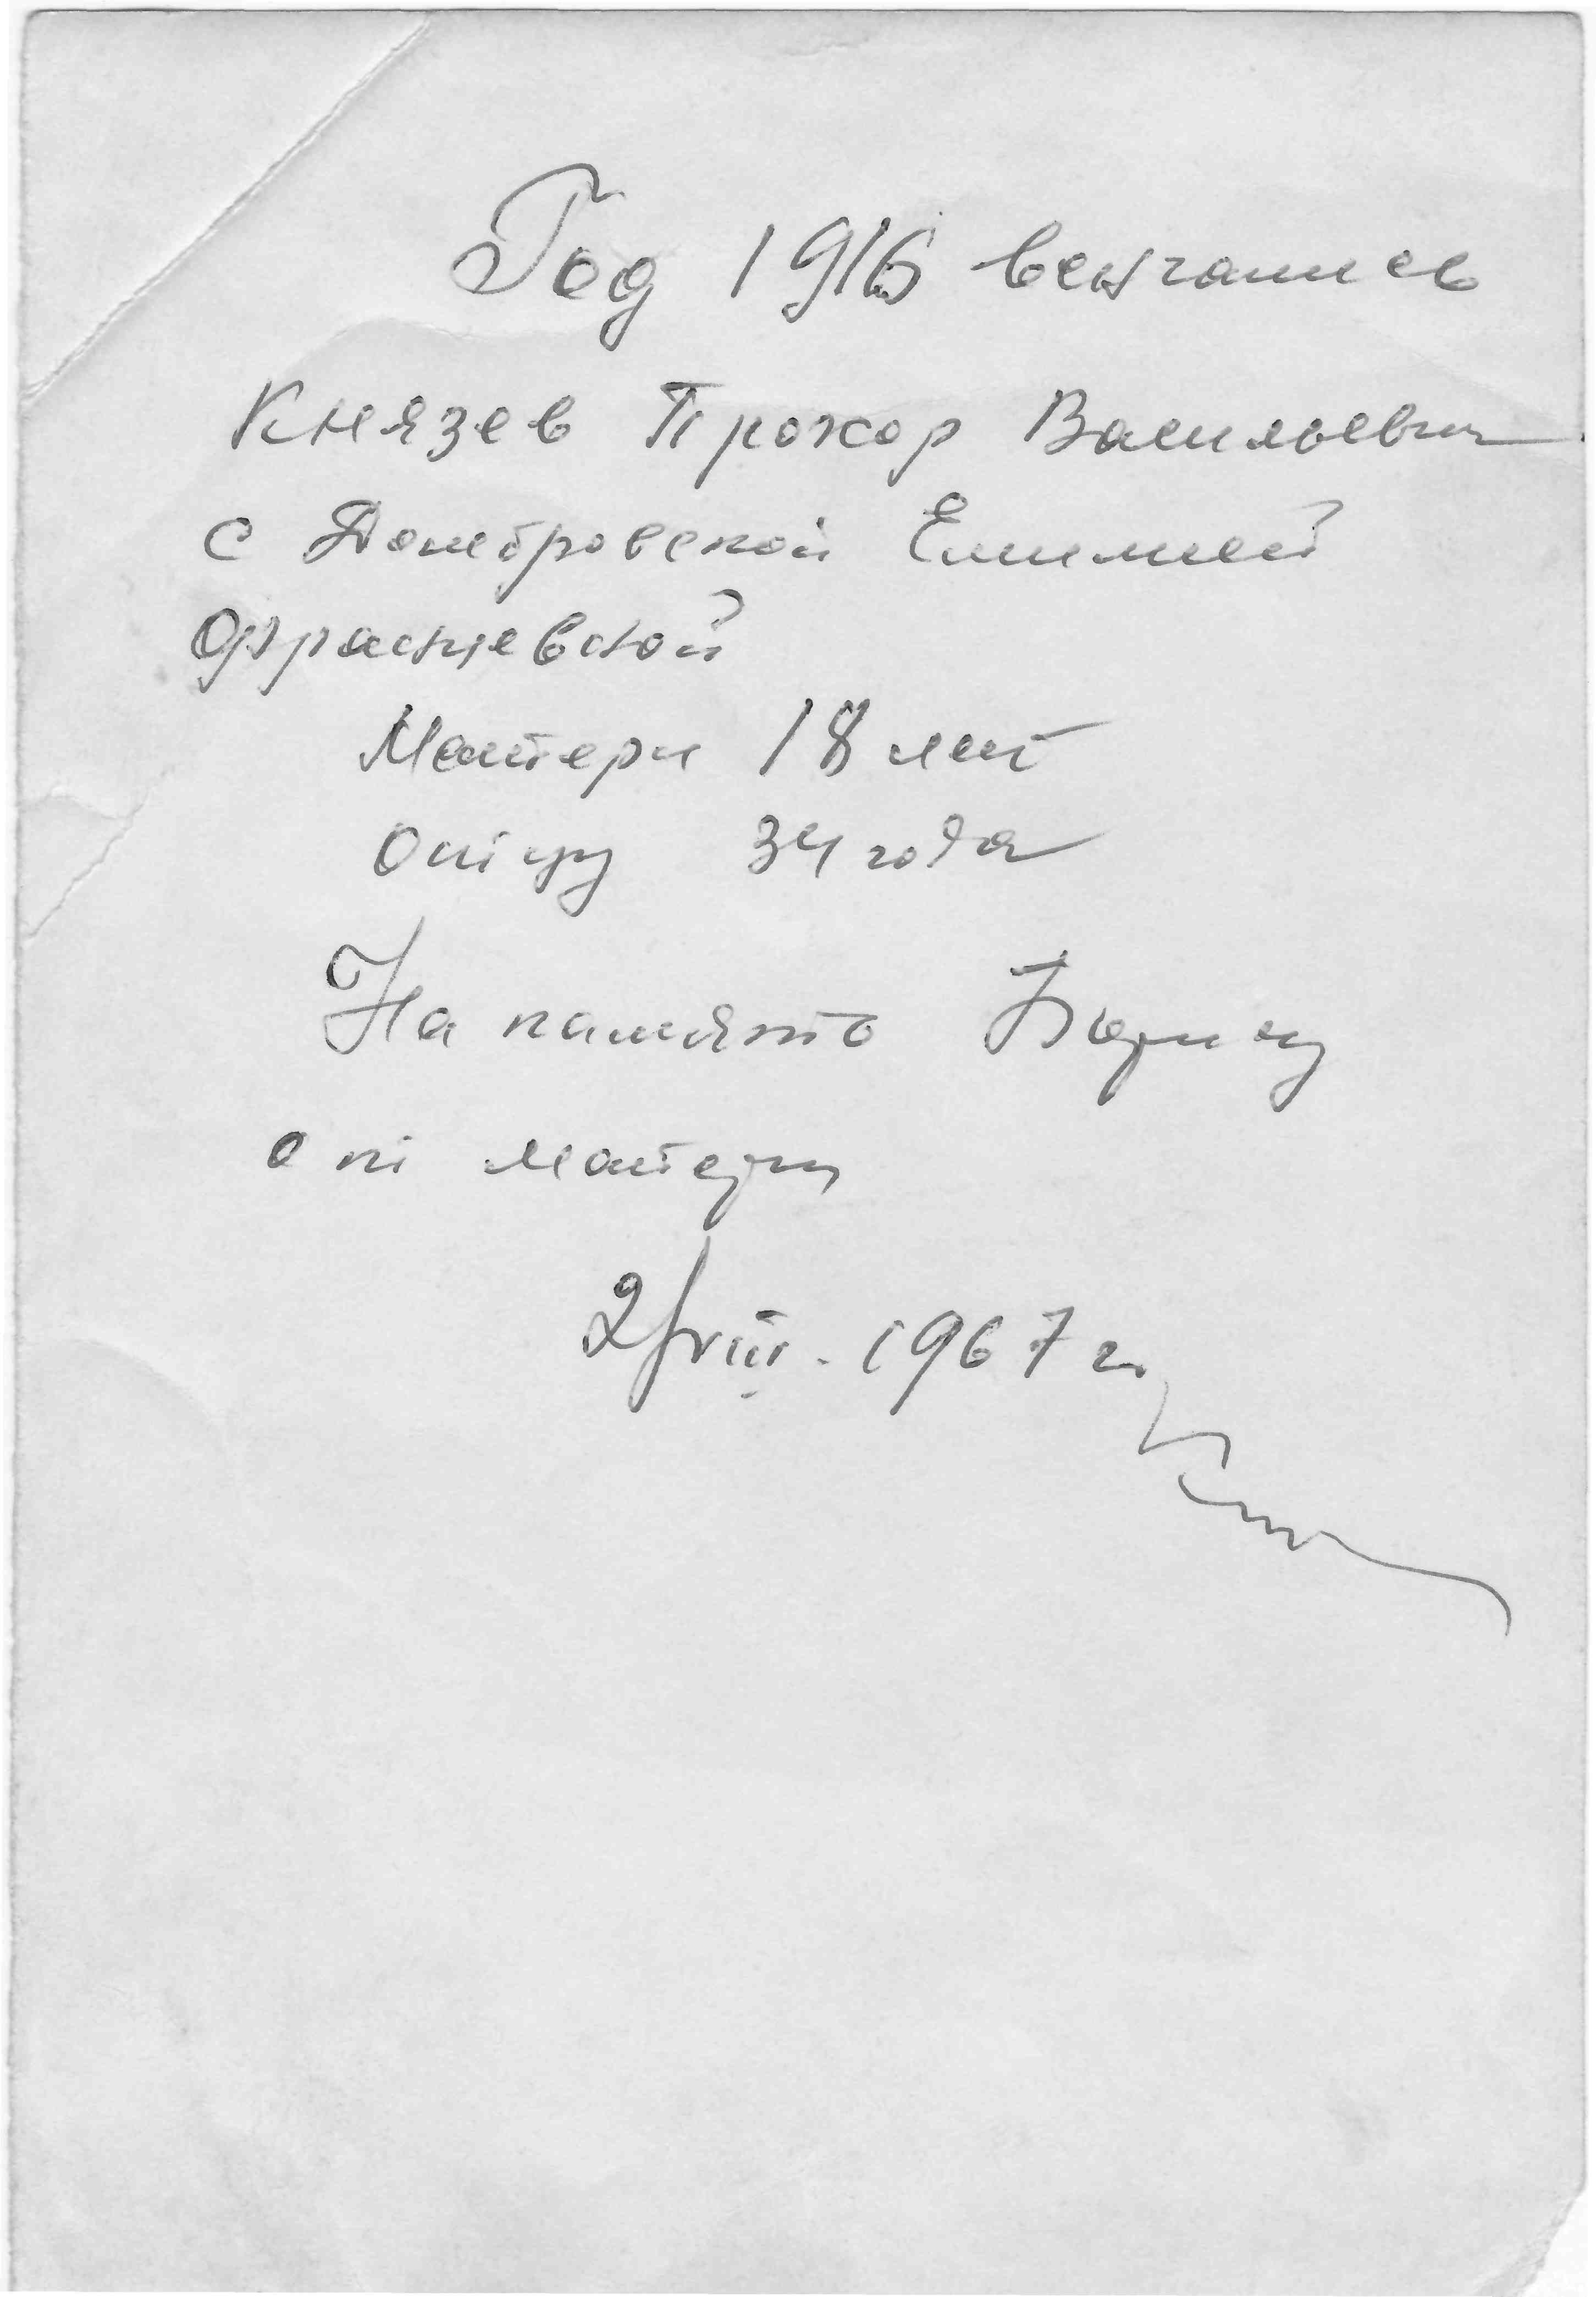 Год 1916 венчались
Князев Прохор Васильевич
с Домбровской Емилией
Францевной
Матери 18 лет
Отцу 34 года
На память Борису
от матери
2/VIII. 1967 г.